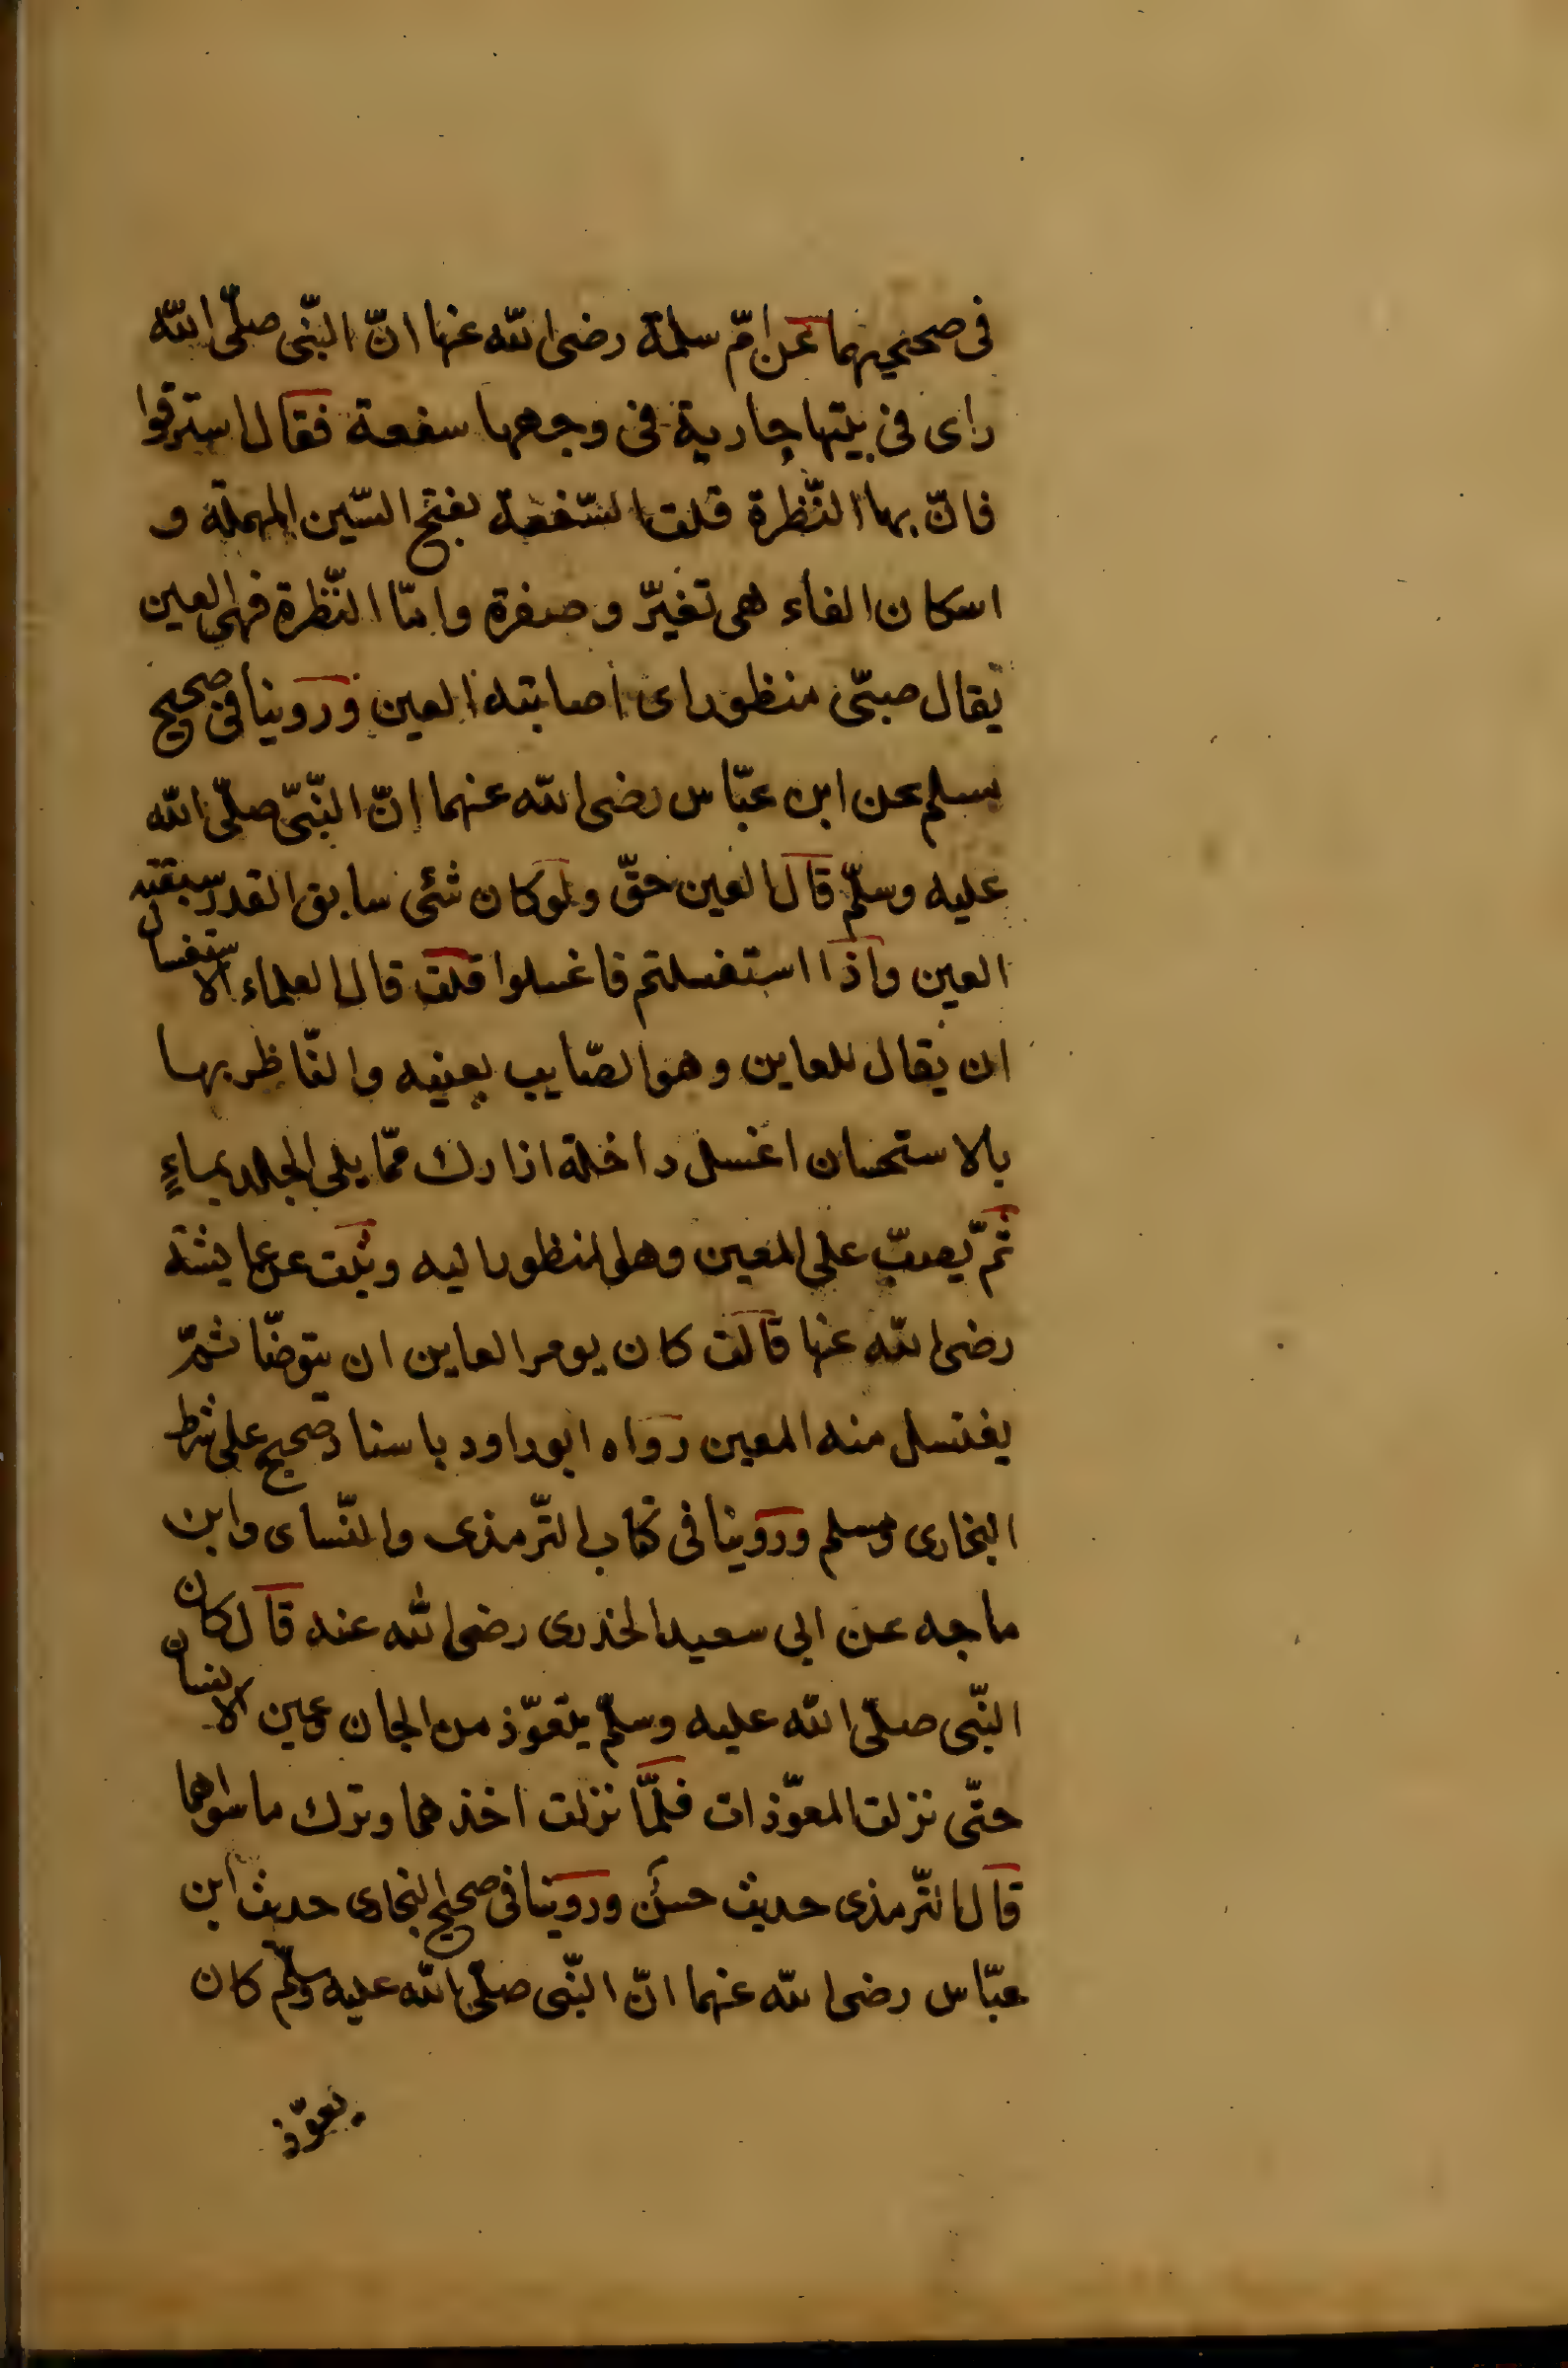 فى صحيحيهما عن امّ سلمة رضى الله عنها انّ النّبى صلّى الله
راى فى بيتها جارية فى وجهها سفعة فقال استرقوا
فانّ بها النّظرة قلت السّفعة بفتح السّين المهملة و
اسكان الفاء هى تغيّر وصفرة وامّا النّظرة فهى العين
يقال صبىّ منظور اى اصابته العين وروينا فى صحيح
مسلم عن ابن عبّاس رضى الله عنهما انّ النّبىّ صلّى الله
عليه وسلّم قال العين حقّ ولو كان شئ سابق القدر سبقته
العين واذا استغسلتم فاغسلوا قلت قال العلماء الاستغسال
ان يقال للعاين وهو الصّايب بعينه والنّاظر بها
بالاستحسان اغسل داخلة ازارك ممّا يلى الجلد بماءٍ
ثمّ يصبّ على المعين وهو المنظور اليه وثبت عن عايشة
رضى الله عنها قالت كان يومر العاين ان يتوضّا ثمّ
يغتسل منه المعين رواه ابوداود باسناد صحيح على شرط
البخارى ومسلم وروينا فى كتاب التّرمذى والنّساى وابن
ماجه عن ابى سعيد الخذرى رضى الله عنه قال كان
النّبى صلّى الله عليه وسلّم يتعوّذ من الجان وعين الانسان
حتّى نزلت المعوّذات فلمّا نزلت اخذ هما وترك ما سواهما
قال التّرمذى حديث حسن وروينا فى صحيح البخارى حديث ابن
عبّاس رضى الله عنهما انّ النّبى صلّى الله عليه وسلّم كان
يعوّذ